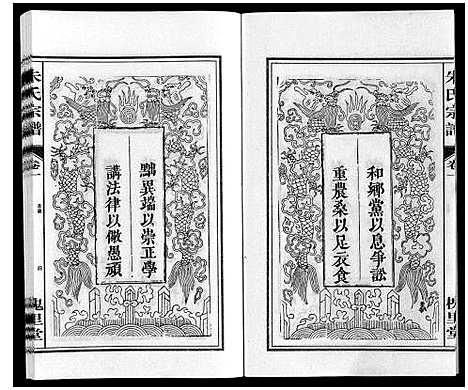 朱氏宗譜
卷一
槐里堂
和鄉黨以息爭訟
重農桑以足衣食
黜異端以崇正學
講法律以儆愚頑
朱氏宗譜
卷一
槐里堂